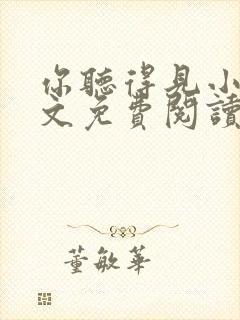 你聽得見小
文免費閱讀
董敏華